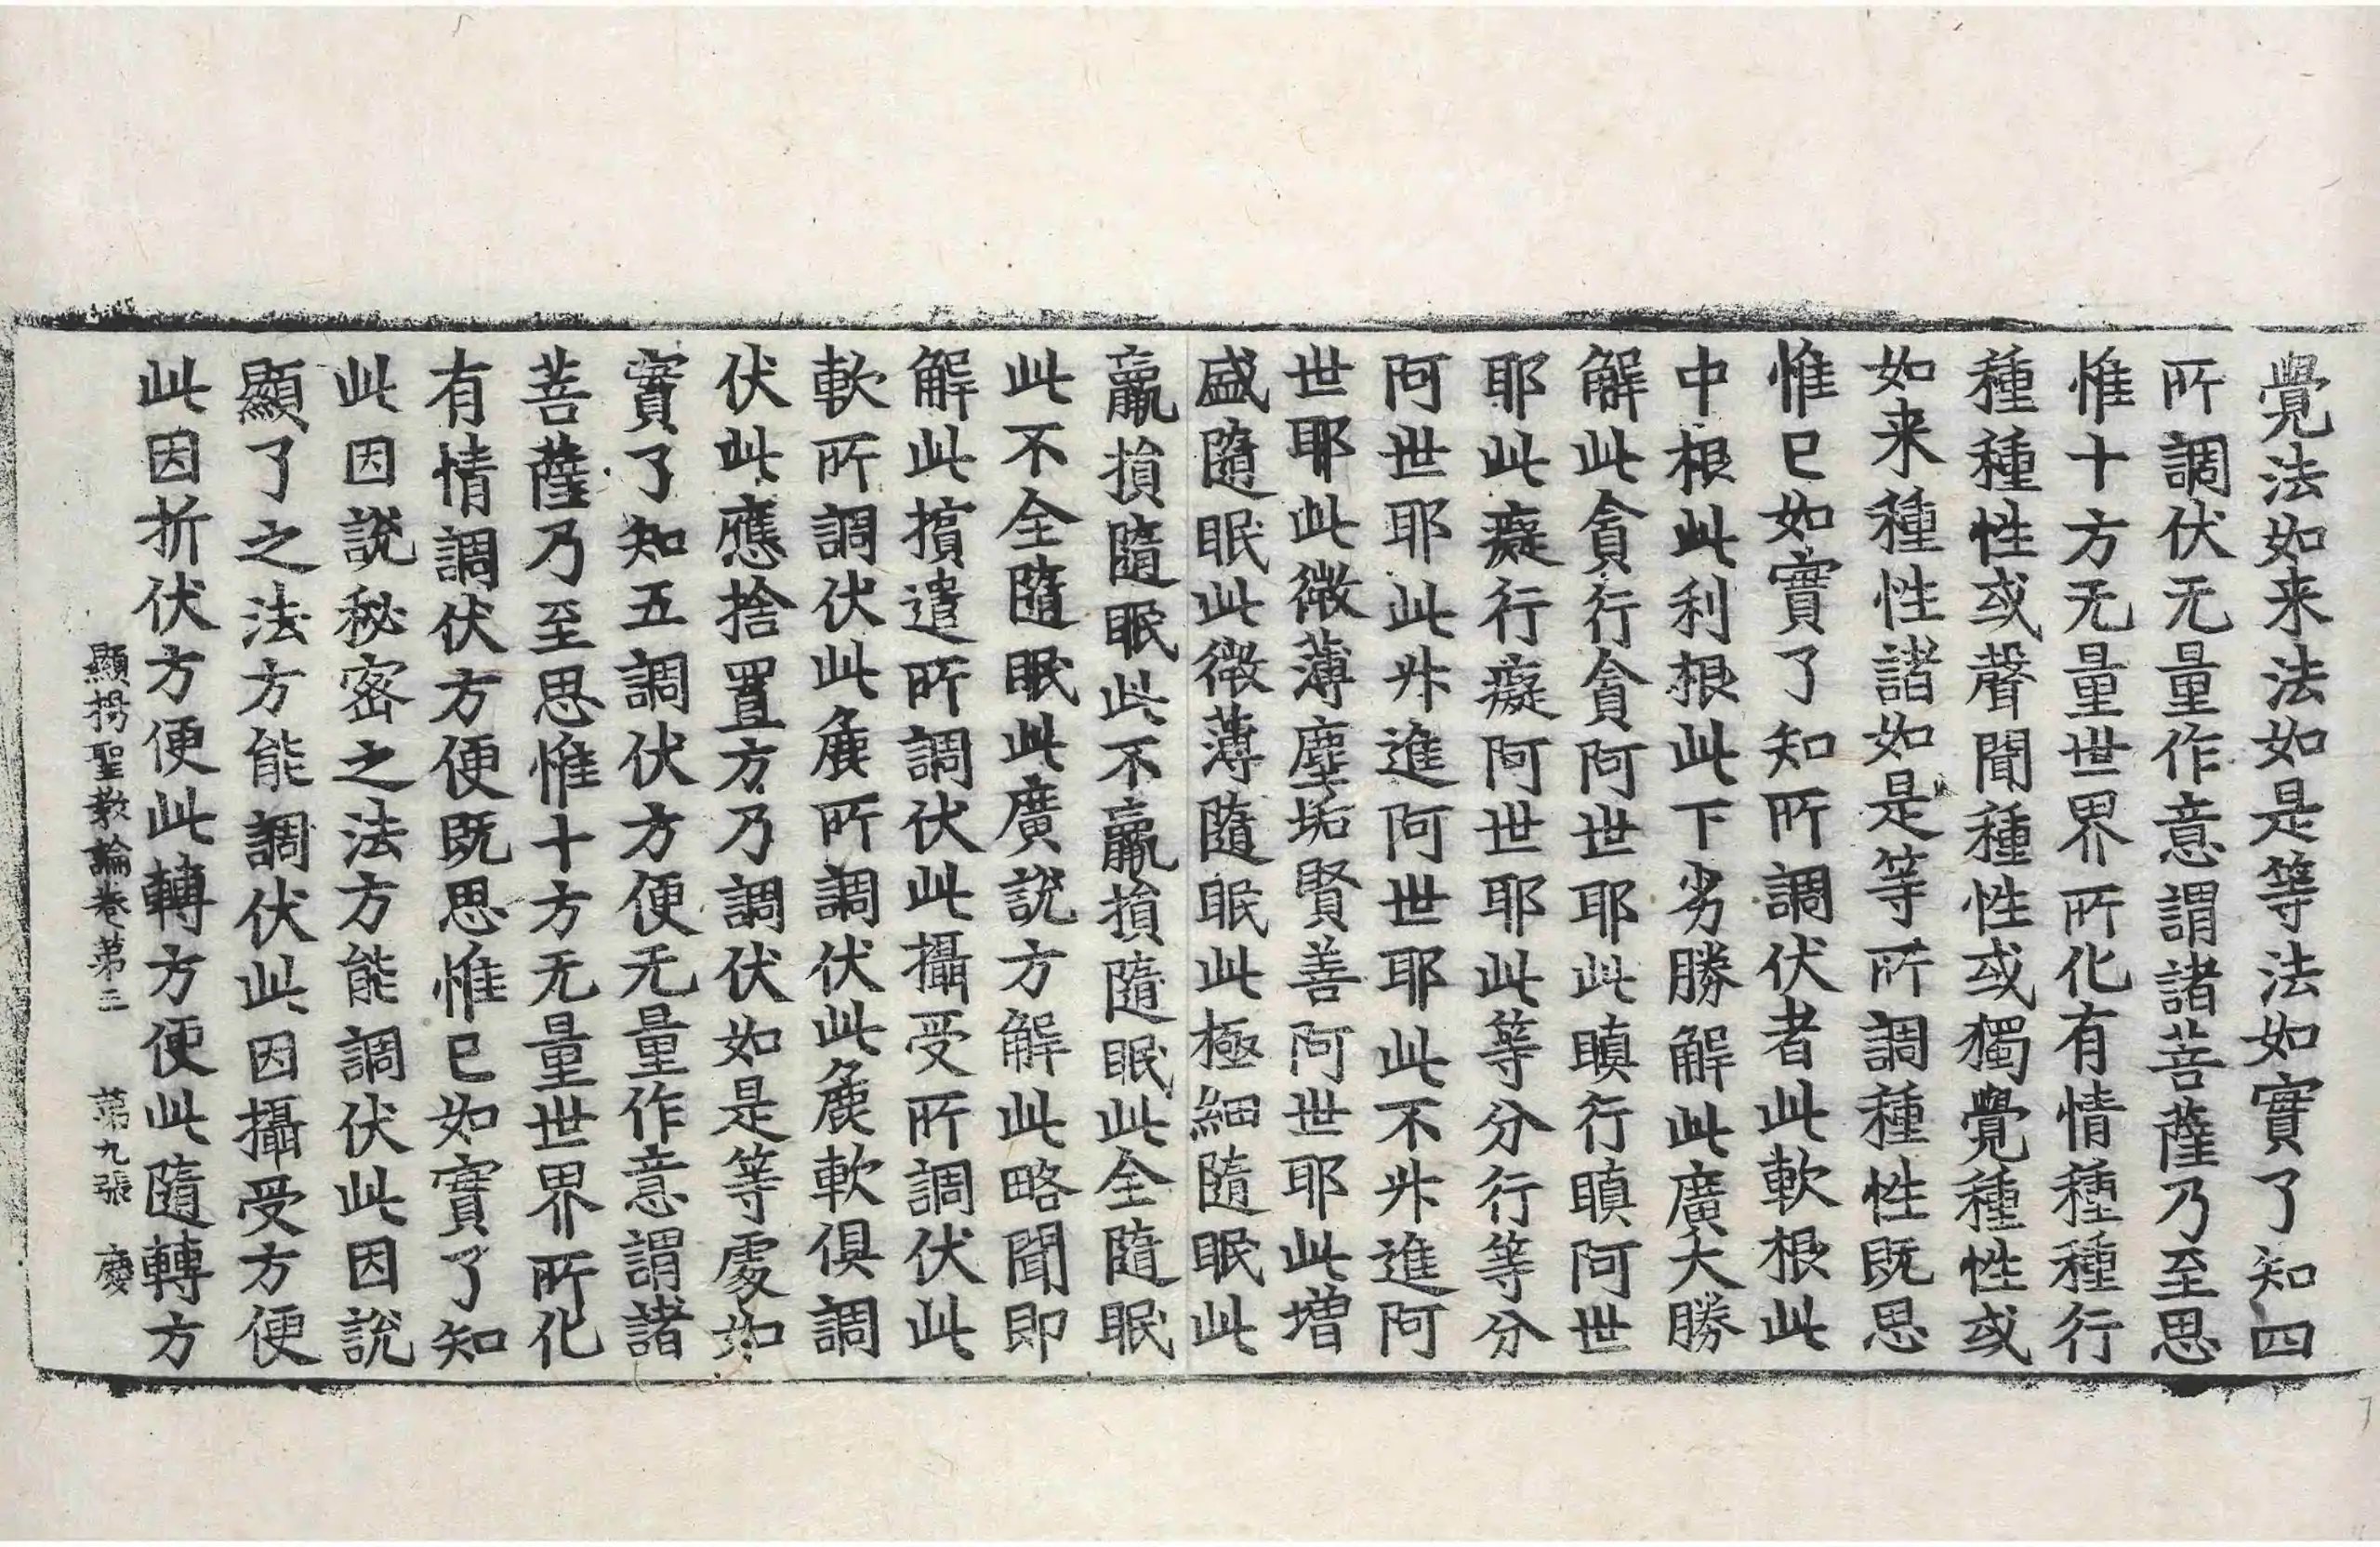 覺法如来法如是等法如實了知四
所調伏无量作意謂諸菩薩乃至思
惟十方无量世界所化有情種種行
種種性或聲聞種性或獨覺種性或
如来種性諸如是等所調種性既思
惟已如實了知所調伏者此軟根此
中根此利根此下劣勝解此廣大勝
解此貪行貪阿世耶此瞋行瞋阿世
耶此癡行癡阿世耶此等分行等分
阿世耶此升進阿世耶此不升進阿
世耶此微薄塵垢賢善阿世耶此增
盛隨眠此微薄隨眠此極細隨眠此
羸損隨眠此不羸損隨眠此全隨眠
此不全隨眠此廣說方解此略聞即
解此擯遣所調伏此攝受所調伏此
軟所調伏此麁所調伏此麁軟俱調
伏此應捨置方乃調伏如是等處如
實了知五調伏方便无量作意謂諸
菩薩乃至思惟十方无量世界所化
有情調伏方便既思惟已如實了知
此因說秘密之法方能調伏此因說
顯了之法方能調伏此因攝受方便
此因折伏方便此轉方便此隨轉方
顯揚聖教論卷第三 第九張 慶